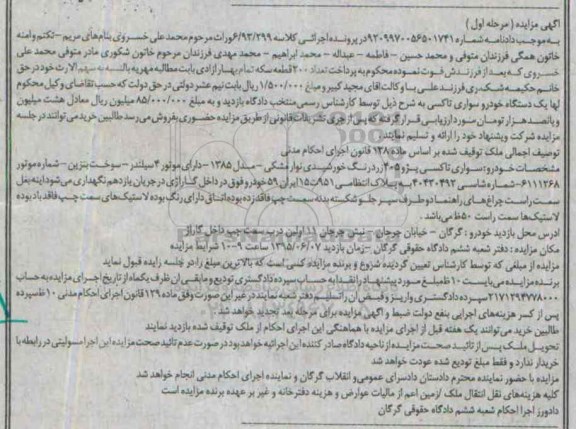 آگهی مزایده (مرحله اول)
به موجب دادنامه شماره ۹۲۰۹۹۷۰۰۵۶۵۰۱۷۴۱ در پرونده اجرائی کلاسه ۶/۹۳/۲۹۹ وراث مرحوم محمد علی خسروی بنام‌های مریم - تکتم و امنه
خاتون همگی فرزندان متوفی و محمد حسین - فاطمه - عبداله - محمد ابراهیم - محمد مهدی فرزندان مرحوم خاتون شکوری مادر متوفی محمد علی
خسروی که بعد از فرزندش فوت نموده محکوم به پرداخت تعداد ۲۰۰ قطعه سکه تمام بهار آزادی بابت مطالبه مهریه بالنسبه به سهم الارث خود در حق
خانم حکیمه شکری فرزند علی با وکالت آقای مجید کبیر و مبلغ ۱/۵۰۰/۰۰۰ ریال بابت نیم عشر دولتی در حق دولت که حسب تقاضای وکیل محکوم
لها یک دستگاه خودرو سواری تاکسی به شرح ذیل توسط کارشناس رسمی منتخب دادگاه بازدید و به مبلغ ۸۵/۰۰۰/۰۰۰ میلیون ریال معادل هشت میلیون
و پانصد هزار تومان مورد ارزیابی قرار گرفته که پس از جری تشریفات قانونی از طریق مزایده حضوری بفروش می‌رسد طالبین خرید می توانند در جلسه
مزایده شرکت و پیشنهاد خود را ارائه و تسلیم نمایند
توصیف اجمالی ملک توقیف شده بر اساس ماده ۱۳۸ قانون اجرای احکام مدنی
مشخصات خودرو: سواری تاکسی پژو ۴۰۵ زرد رنگ خورشیدی نوار مشکی - مدل ۱۳۸۵ - دارای موتور ۴ سیلندر - سوخت بنزین - شماره موتور
۶۱۱۱۲۶۸ - شماره شاسی ۴۰۴۳۰۴۹۲ به پلاک انتظامی ۹۵۱ ت ۱۵ ایران ۵۹ خودرو فوق در داخل گاراژی در جریان یازدهم نگهداری می‌شود اینه بغل
سمت راست چراغهای راهنما دو طرف سپر جلو شکسته بدنه سمت چپ فاقد زده بوده اتاق دارای رنگ بوده لاستیک‌های سمت چپ فاقد باد بوده
لاستیک‌ها سمت راست ۵۰٪ می‌باشد.
آدرس محل بازدید خودرو: گرگان - خیابان جرجان - نبش جرجان ۱۱ اولین درب سمت چپ داخل گاراژ
مکان مزایده: دفتر شعبه ششم دادگاه حقوقی گرگان - زمان بازدید ۱۳۹۵/۰۶/۰۷ ساعت ۹-۱۰ شرایط مزایده
مزایده از مبلغی که توسط کارشناس تعیین گردیده شروع و برنده مزایده کسی است که بالاترین مبلغ را در جلسه زایده قبول نماید
برنده مزایده می‌بایست ۱۰٪ مبلغ مورد پیشنهاد را نقدا به حساب سپرده دادگستری تودیع و مابقی آن ظرف یکماه از تاریخ اجرای مزایده به حساب
۲۱۷۱۲۹۴۷۷۸۰۰۰ سپرده دادگستری واریز و فیش آن را تسلیم دفتر شعبه نماید در غیر این صورت وفق ماده ۱۲۹ قانون اجرای احکام مدنی ۱۰٪ سپرده
پس از کسر هزینه‌های اجرایی بنفع دولت ضبط و آگهی مزایده برای مرحله بعد تجدید خواهد شد.
طالبین خرید می توانند یک هفته قبل از اجرای مزایده با هماهنگی این اجرای احکام از ملک توقیف شده بازدید نمایند
تحویل ملک پس از تائید صحت مزایده از ناحیه دادگاه صادر کننده این اجرائیه خواهد بود در صورت عدم تائید صحت مزایده این اجرا مسولیتی در رابطه با
خریدار ندارد و فقط مبلغ تودیع شده عودت خواهد شد
مزایده با حضور نماینده محترم دادستان دادسرای عمومی و انقلاب گرگان و نماینده اجرای احکام مدنی انجام خواهد شد
کلیه هزینه‌های نقل انتقال ملک /زمین اعم از مالیات عوارض و هزینه دفترخانه و غیر بر عهده برنده مزایده است
دادورز اجرا احکام شعبه ششم دادگاه حقوقی گرگان